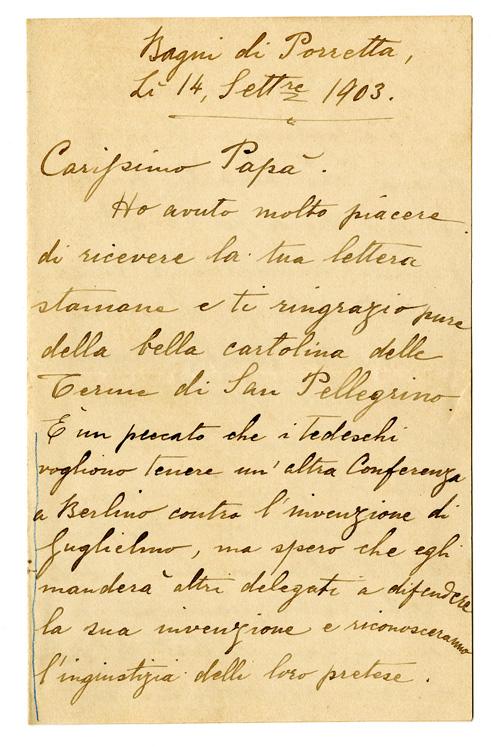 Bagni di Porretta,
Li 14, Settre 1903.
Carissimo Papà.
Ho avuto molto piacere
di ricevere la tua lettera
stamane e ti ringrazio pure
della bella cartolina delle
Terme di San Pellegrino.
È un peccato che i tedeschi
vogliono tenere un'altra Conferenza
a Berlino contro l'invenzione di
Guglielmo, ma spero che egli
manderà altri delegati a difendere
la sua invenzione e riconosceranno
l'ingiustizia delle loro pretese.